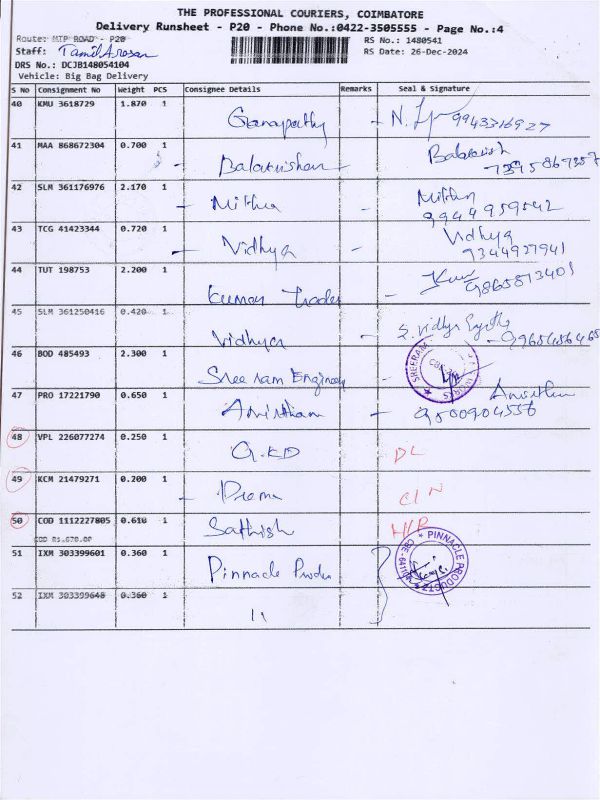 THE PROFESSIONAL COURIERS, COIMBATORE
Delivery Runsheet - P20 - Phone No.:0422-3505555 - Page No.:4
Route: MTP ROAD - P20
RS No.: 1480541
Staff: Tamil Arasan
RS Date: 26-Dec-2024
DRS No.: DCJB148054104
Vehicle: Big Bag Delivery
S No Consignment No Weight PCS Consignee Details Remarks Seal & Signature
40 KMU 3618729 1.870 1 Ganapathy - N. 9943316927
41 MAA 868672304 0.700 1 - Balakrishnan - Balakrish
42 SLM 361176976 2.170 1 - Mithra - Mithra
9944959542
43 TCG 41423344 0.720 1 - Vidhya - Vidhya
9344927941
44 TUT 198753 2.200 1 Kumar Trader - 9865813401
45 SLM 361250416 0.420 1 Vidhya - S. Vidhya
46 BOD 485493 2.300 1 Sree ram Engineer - SREERAM
47 PRO 17221790 0.650 1 Amirtham - Amirtham
9500904556
48 VPL 226077274 0.250 1 G.KD DL
49 KCM 21479271 0.200 1 - Prema CIN
50 COD 1112227805 0.610 1 Sathish
COD Rs.670.00
51 IXM 303399601 0.360 1 Pinnacle Produ PINNACLE PRODUCTZ
52 IXM 303399648 0.360 1 11